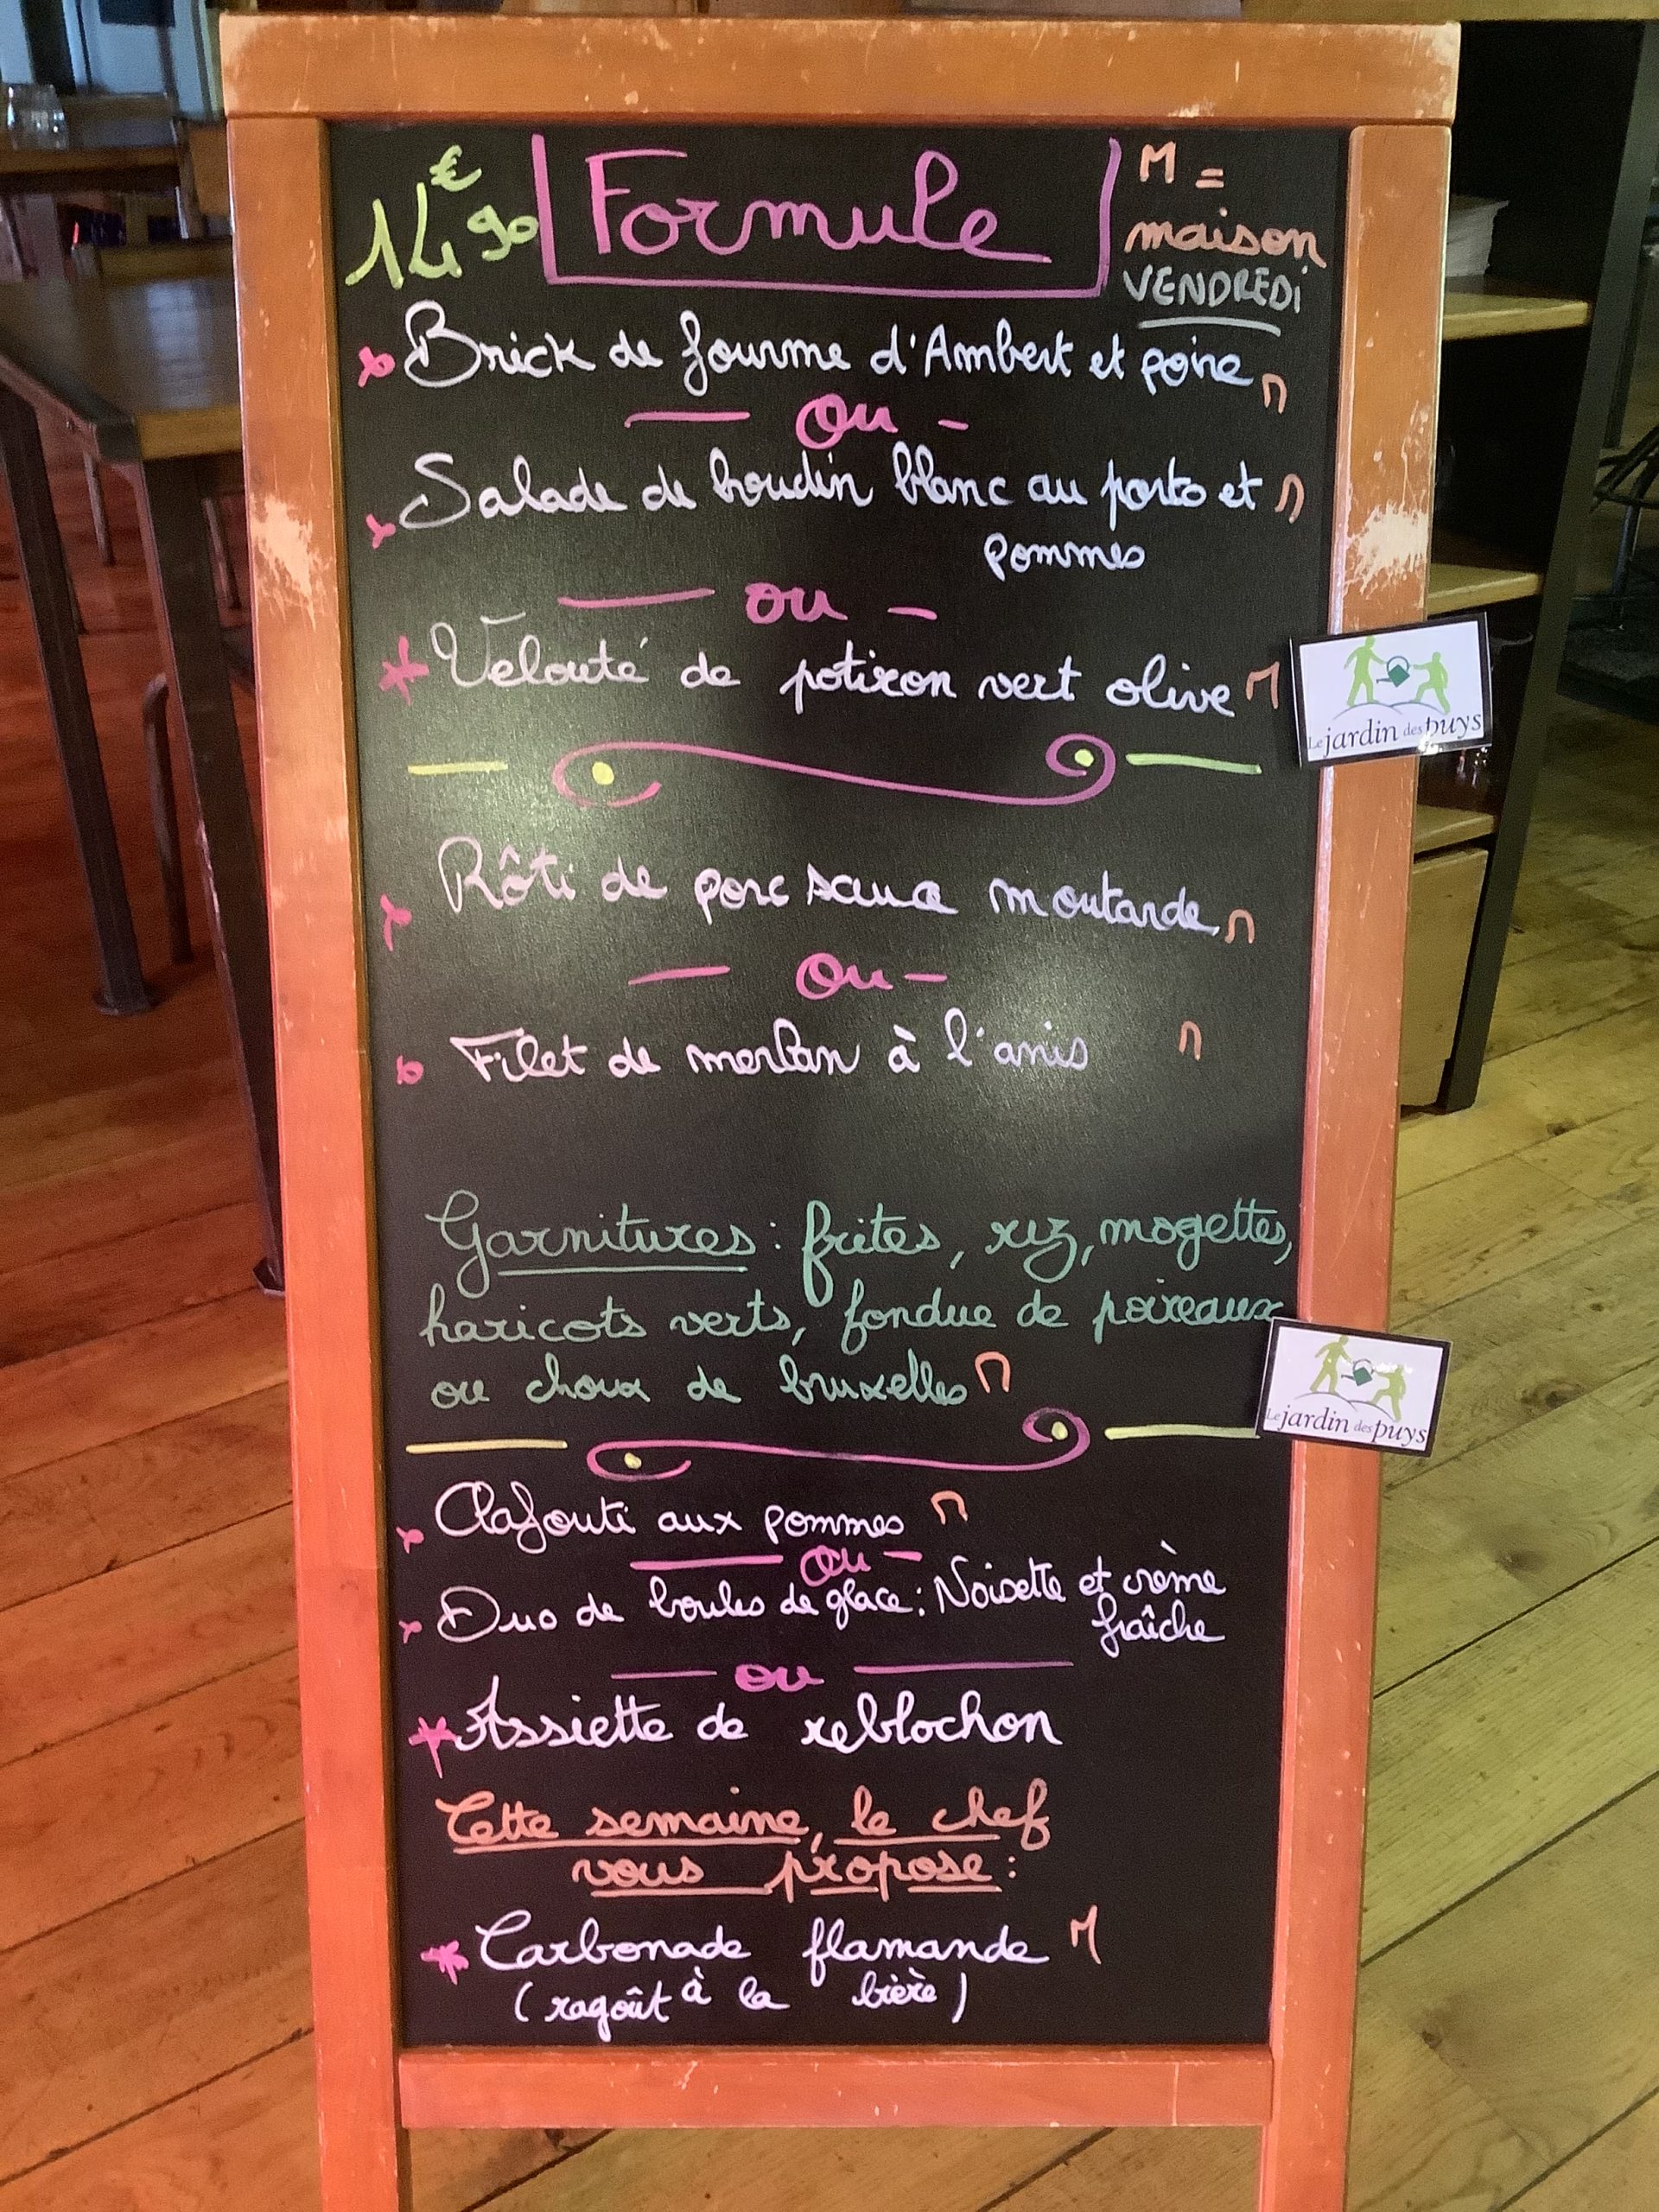 14€90 Formule M =
maison
VENDREDi
Brick de fourme d'Ambert et poire M
Ou
Salade de boudin blanc au porto et M
pommes
ou
Velouté de potiron vert olive M
Le jardin des puys
Rôti de porc sauce moutarde M
Ou
Filet de merlan à l'anis M
Garnitures : frites, riz, mogettes,
haricots verts, fondue de poireaux
ou choux de bruxelles M
Le jardin des puys
Clafouti aux pommes M
Ou
Duo de boules de glace : Noisette et crème
fraîche
ou
Assiette de reblochon
Cette semaine, le chef
vous propose :
Carbonade flamande M
(ragoût à la bière)